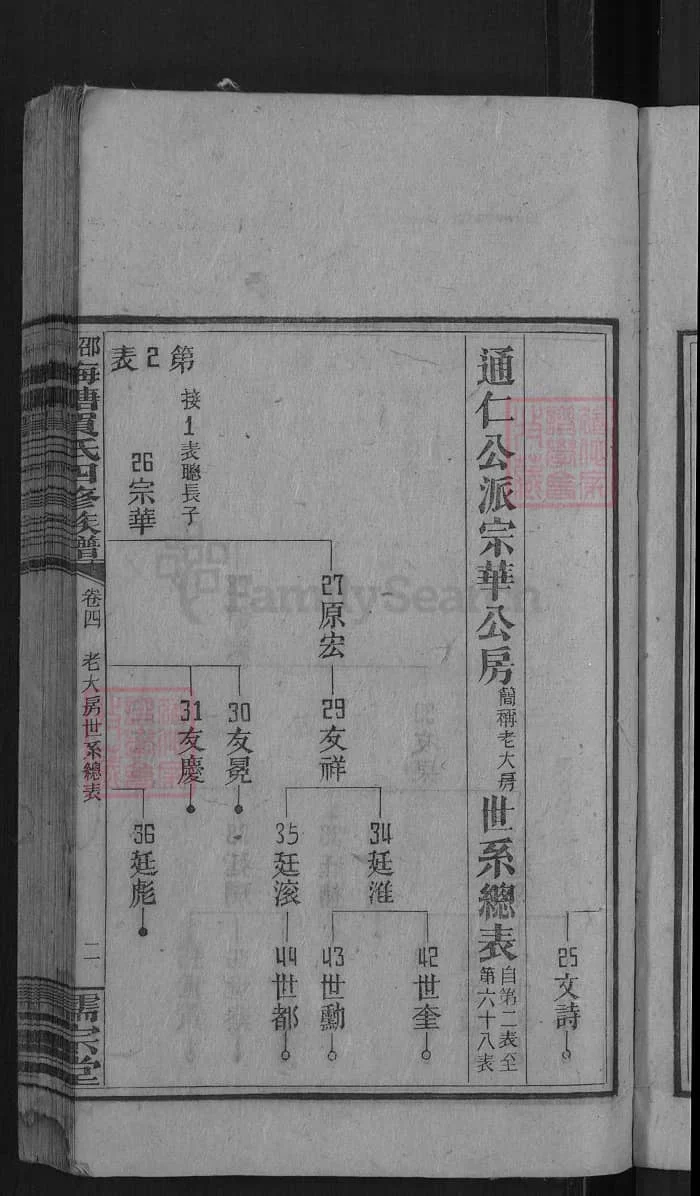 25 文詩
通仁公派宗華公房簡稱老大房世系總表自第二表至第六十八表
第2表
接1表聰長子
26 宗華
27 原宏
29 友祥
30 友冕
31 友慶
34 廷淮
35 廷滚
36 廷彪
42 世奎
43 世勳
44 世都
邵海塘賀氏四修族譜
卷四 老大房世系總表
二
儒宗堂
FamilySearch